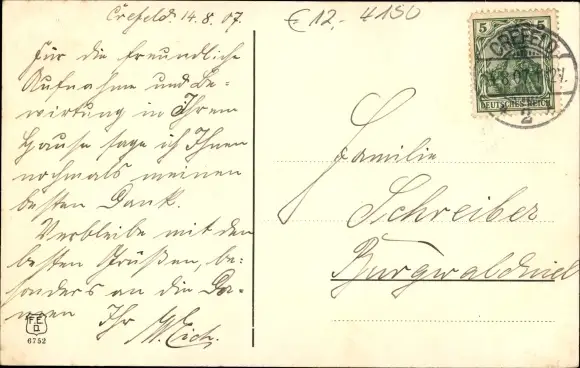 Crefeld 14.8.07.
€12,- 4150
Für die freundliche
Aufnahme und Be-
wirtung in Ihrem
Hause sage ich Ihnen
nochmals meinen
besten Dank.
Verbleibe mit den
besten Grüßen, be-
sonders an die Da-
men Ihr
W. Eich.
Familie
Schreiber
Burgwaldniel
5 5
DEUTSCHES REICH
CREFELD
2
F.E.D.
6752